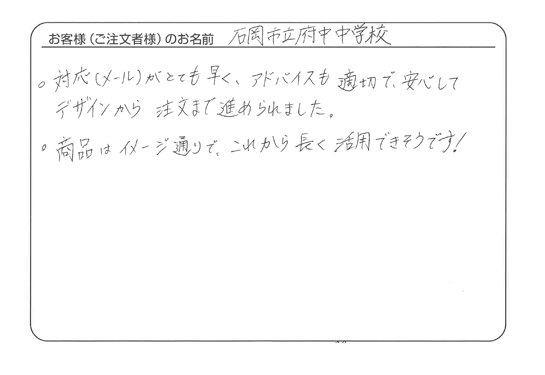 お客様（ご注文者様）のお名前 石岡市立府中中学校
○ 対応（メール）がとても早く、アドバイスも適切で、安心して
デザインから 注文まで進められました。
○ 商品はイメージ通りで、これから長く活用できそうです!